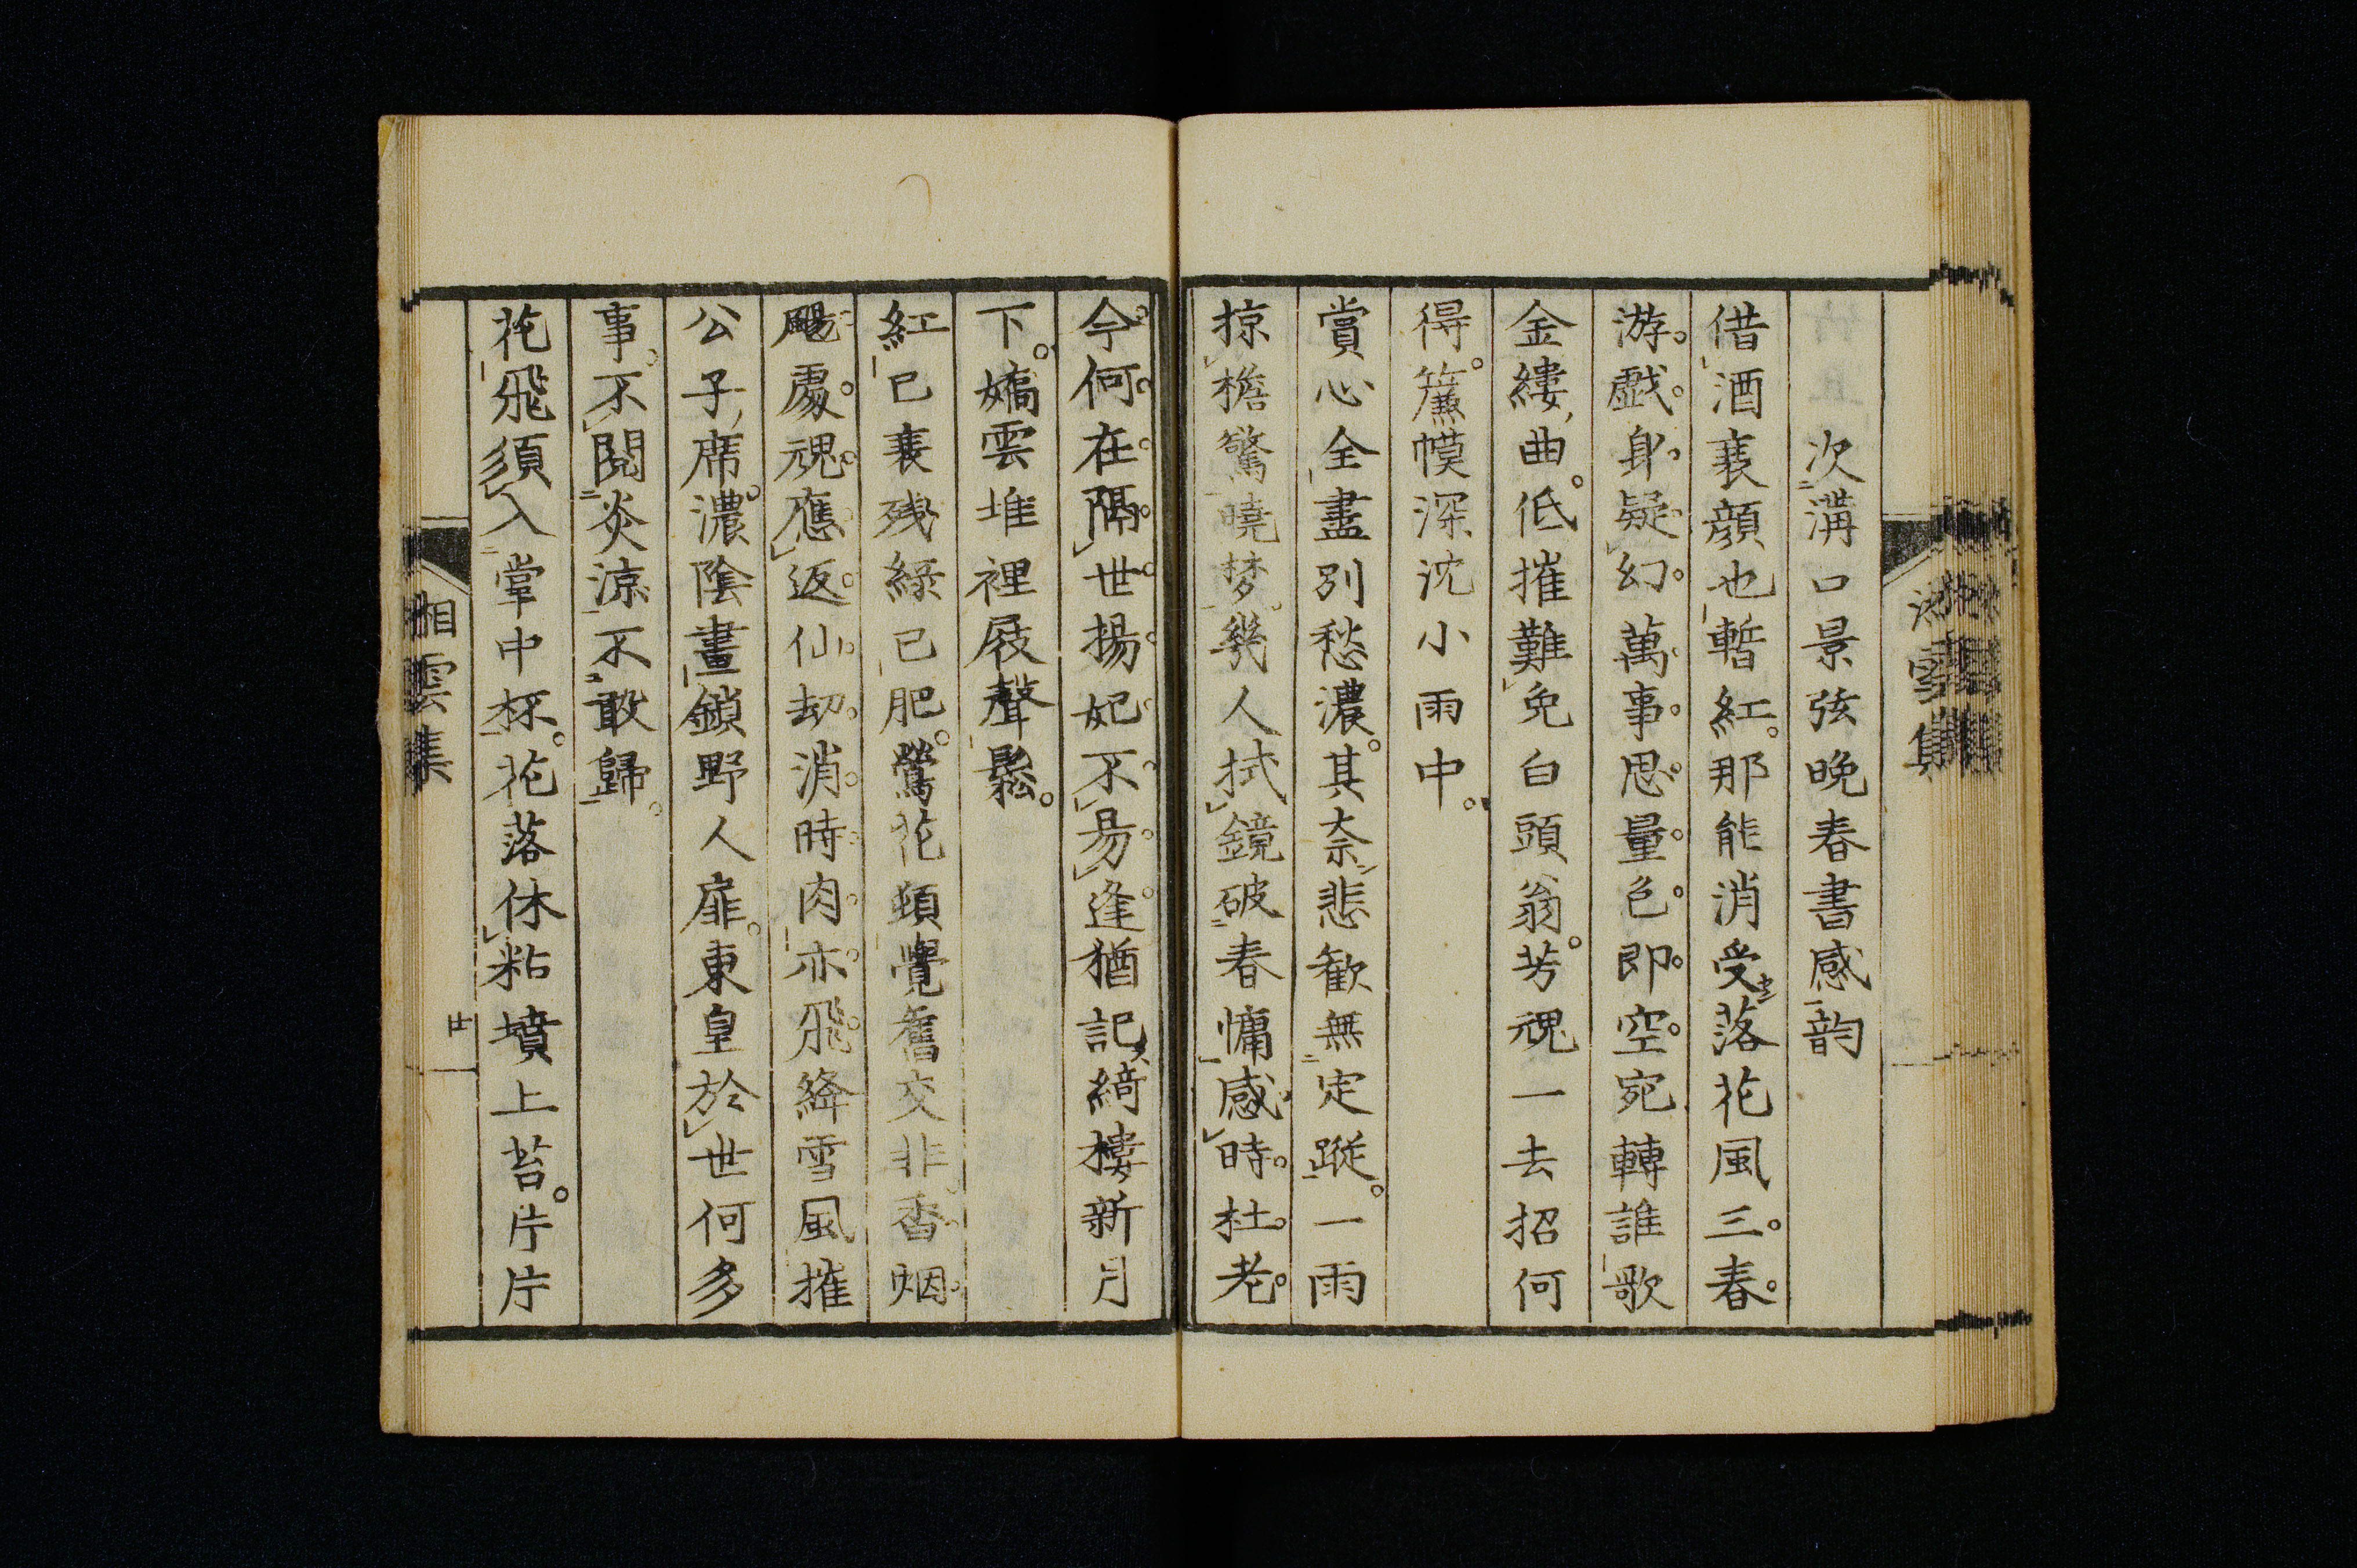 次溝口景弦晩春書感韵
借酒衰顔也暫紅。那能消受落花風三。春。
游。戯。身。疑。幻。萬。事。思。量。色。即。空。宛轉誰歌
金縷曲。低摧難免白頭翁。芳魂一去招何
得。簾幙深沈小雨中。
賞心全盡別愁濃。其奈悲歓無定蹤。一雨
掠檐驚曉梦。幾人拭鏡破春慵感時。杜。老。
今。何。在。隔。世。揚。妃。不。易。逢。猶記綺樓新月
下。嬌雲堆裡屐聲鬆。
紅已衰残緑已肥。鶯花頓覺舊交非。香。烟。
颺。處。魂。應。返。仙。劫。消。時。肉。亦。飛。絳雪風摧
公子席。濃陰晝鎖野人扉。東皇於世何多
事。不閲炎涼不敢歸。
花飛須入掌中杯。花落休粘墳上苔。片片
湘雲集
廿